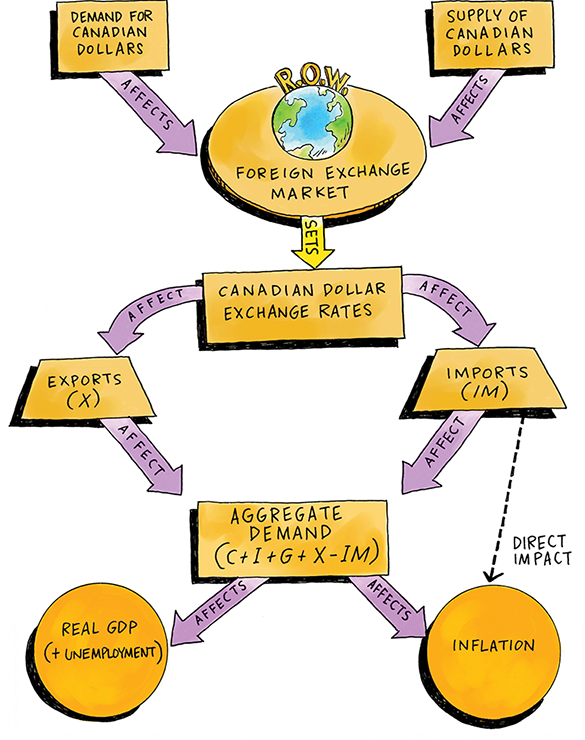 DEMAND FOR
CANADIAN
DOLLARS
SUPPLY OF
CANADIAN
DOLLARS
AFFECTS
AFFECTS
R.O.W.
FOREIGN EXCHANGE
MARKET
SETS
CANADIAN DOLLAR
EXCHANGE RATES
AFFECT
AFFECT
EXPORTS
(X)
IMPORTS
(IM)
AFFECT
AFFECT
AGGREGATE
DEMAND
(C+I+G+X-IM)
DIRECT
IMPACT
AFFECTS
AFFECTS
REAL GDP
(+ UNEMPLOYMENT)
INFLATION